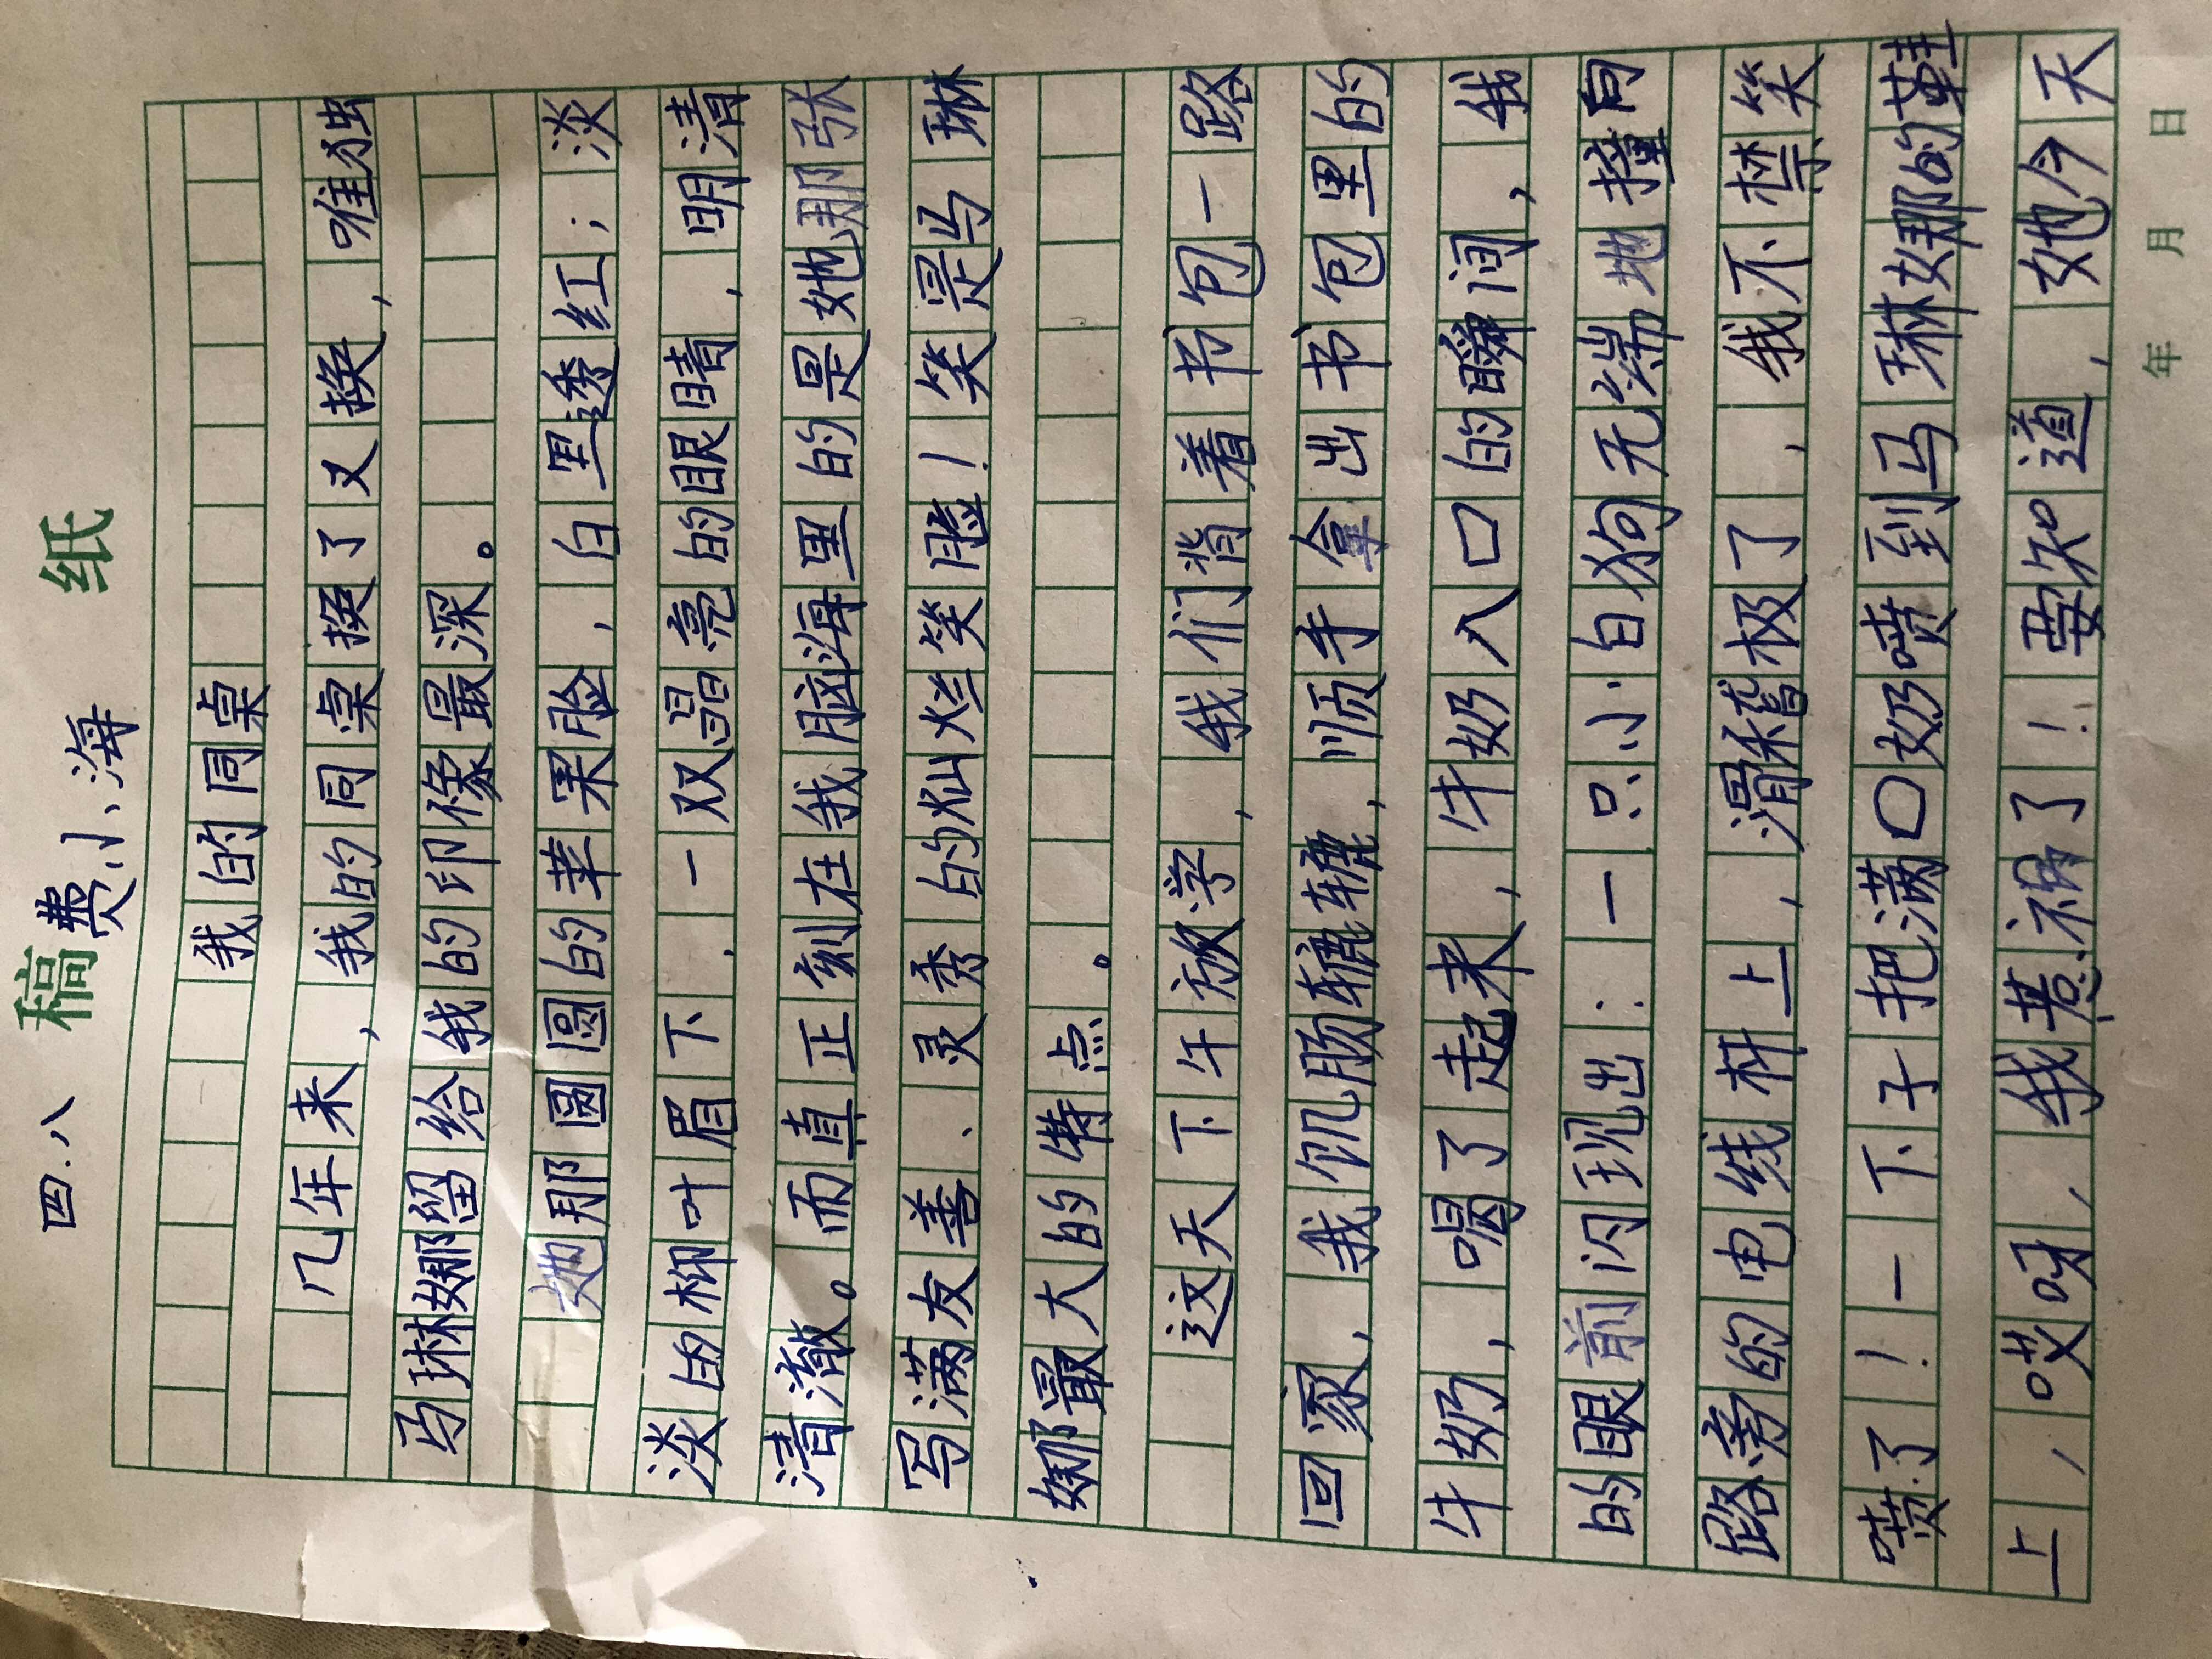 稿纸
四.八 费小海
我的同桌
几年来,我的同桌换了又换,唯独
马琳娜留给我的印像最深。
她那圆圆的苹果脸,白里透红;淡
淡的柳叶眉下,一双晶亮的眼睛,明清
清澈。而真正刻在我脑海里的是她那张
写满友善、灵秀的灿烂笑脸!笑是马琳
娜最大的特点。
这天下午放学,我们背着书包一路
回家,我饥肠辘辘,顺手拿出书包里的
牛奶,喝了起来,牛奶入口的瞬间,我
的眼前闪现出:一只小白狗无端地撞向
路旁的电线杆上,滑稽极了,我不禁笑
喷了!一下子把满口奶喷到马琳娜的鞋
上,哎呀,我惹祸了!要知道,她今天
年 月 日